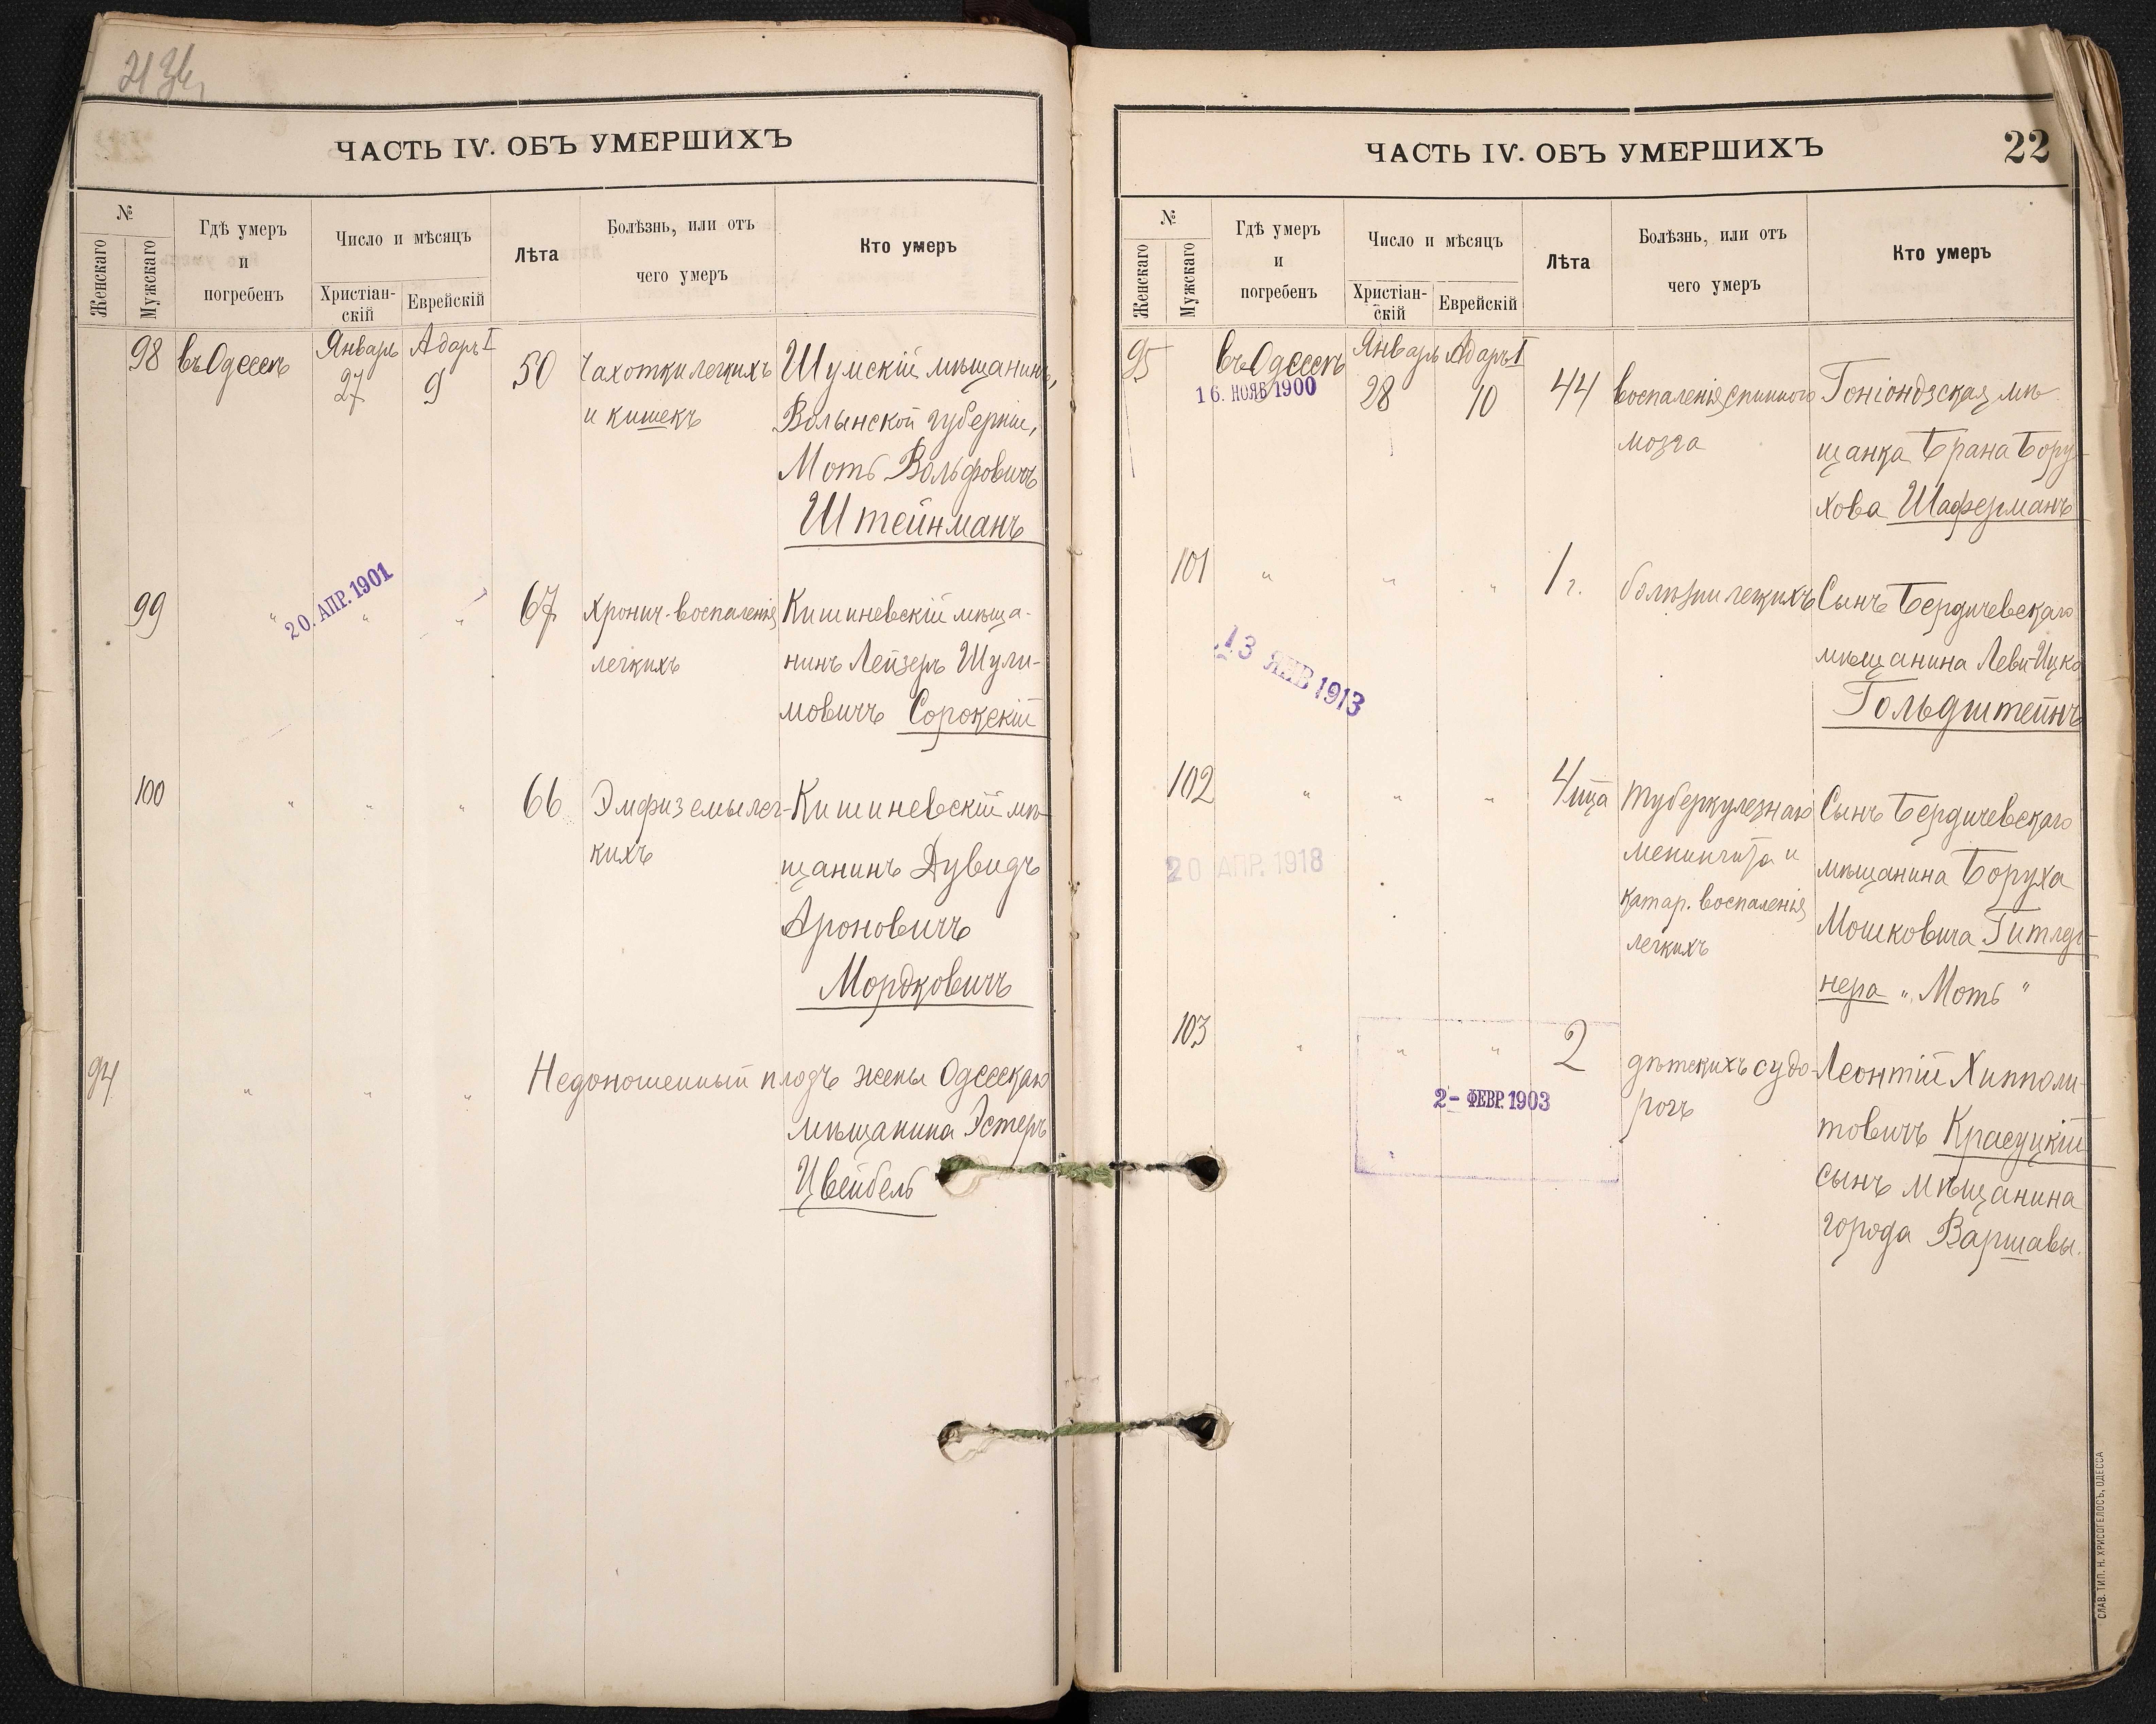 21 Зв,
ЧАСТЬ IV. ОБЪ УМЕРШИХЪ
№
Женскаго
Мужскаго
Гдѣ умеръ
и
погребенъ
Число и мѣсяцъ
Христіан-
скій
Еврейскій
Лѣта
Болѣзнь, или отъ
чего умеръ
Кто умеръ
98 въ Одессѣ Январь 27 Адаръ I 9 50 Чахотки легкихъ Шумскій мѣщанинъ,
и кишекъ Волынской губерніи,
Моть Вольфовичъ
Штейнманъ
20. АПР. 1901
99 " " " 67 Хронич. воспаленія Кишиневскій мѣща-
легкихъ нинъ Лейзеръ Шули-
мовичъ Сорокскій
100 " " " 66 Эмфиземы лег- Кишиневскій мѣ-
кихъ щанинъ Дувидъ
Ароновичъ
Мордковичъ
94 " " " Недоношенный плодъ жены Одесскаго
мѣщанина Эстеръ
Цвейбель
ЧАСТЬ IV. ОБЪ УМЕРШИХЪ
22
№
Женскаго
Мужскаго
Гдѣ умеръ
и
погребенъ
Число и мѣсяцъ
Христіан-
скій
Еврейскій
Лѣта
Болѣзнь, или отъ
чего умеръ
Кто умеръ
95 въ Одессѣ Январь 28 Адаръ I 10 44 воспаленія спинного Гоніондзская мѣ-
16. НОЯБ 1900
мозга щанка Брана Бору-
хова Шаферманъ
101 " " " 1 г. болѣзни легкихъ Сынъ Бердичевскаго
мѣщанина Леви-Ицко
Гольдштейнъ
13 ЯНВ 1913
102 " " " 4 м-ца туберкулезнаго Сынъ Бердичевскаго
менингита и мѣщанина Боруха
20 АПР. 1918
катар. воспаленія Мошковича Гитлер-
легкихъ нера „ Моть "
103 " " " 2 дѣтскихъ судо- Леонтій Хипполи-
рогъ товичъ Красуцкій
2- ФЕВР. 1903
сынъ мѣщанина
города Варшавы.
СЛАВ. ТИП. Н. ХРИСОГЕЛОСЪ, ОДЕССА